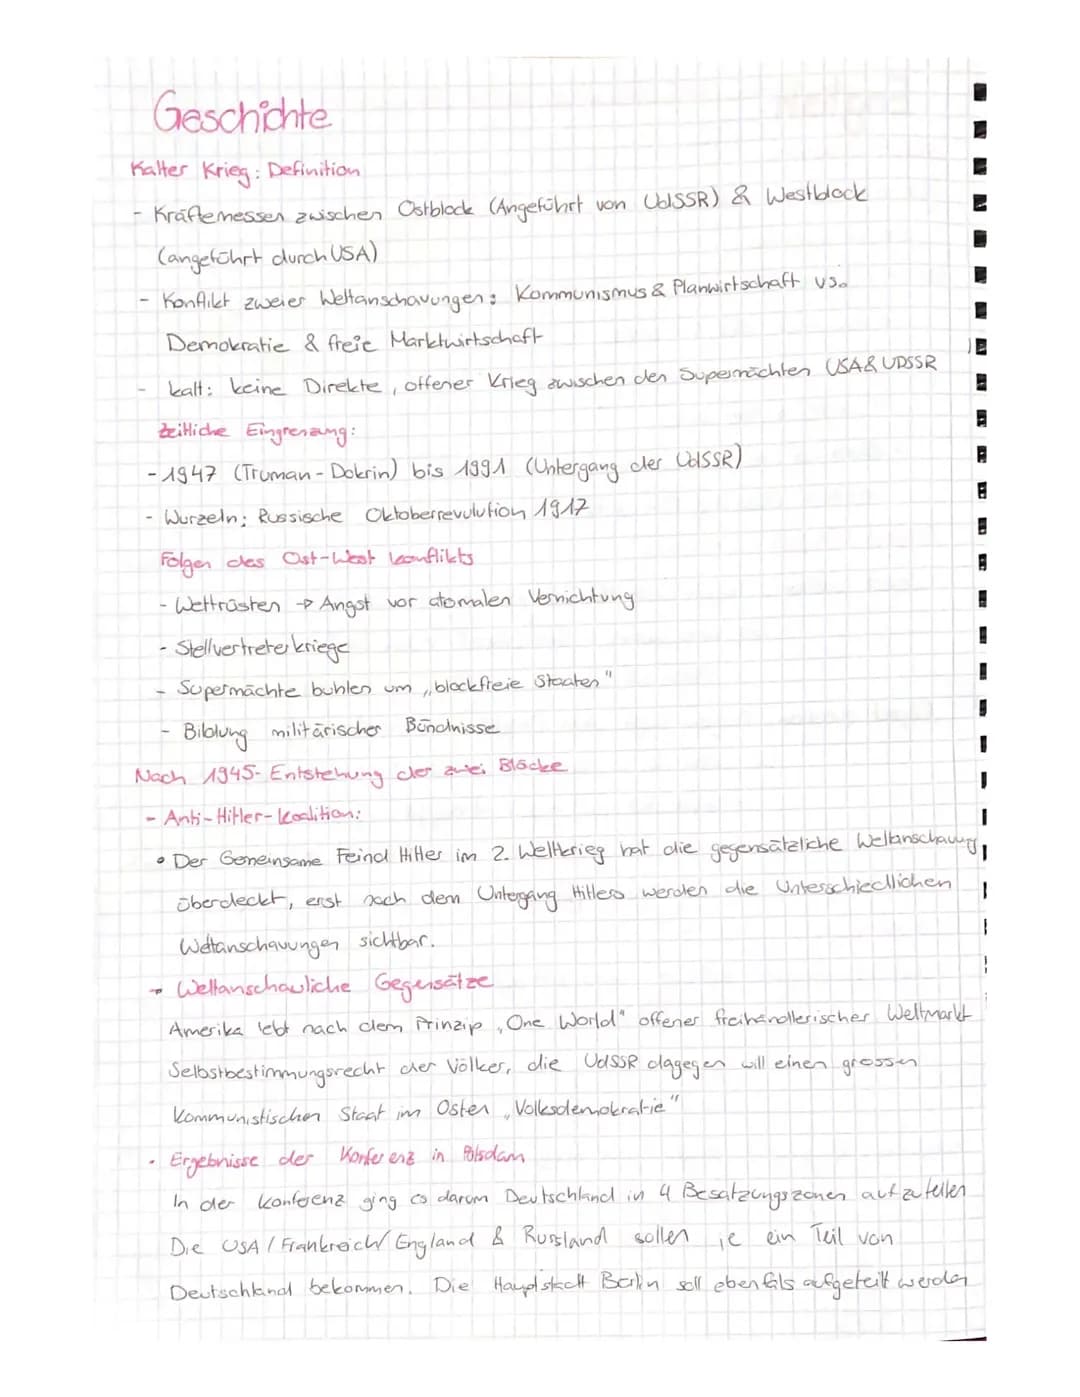 Geschichte
Kalter Krieg: Definition
- Kräftemessen zwischen Ostblock (Angeführt von UdSSR) & Westblock
(angeführt durch USA)
- Konflikt zweier Weltanschauungen: Kommunismus & Planwirtschaft vs.
Demokratie & freie Marktwirtschaft
- kalt: keine Direkte, offener Krieg zwischen den Supermächten USA & UDSSR
zeitliche Eingrenzung:
- 1947 (Truman-Dokrin) bis 1991 (Untergang der UdSSR)
- Wurzeln: Russische Oktoberrevulution 1917
Folgen des Ost-West konflikts
- Wettrüsten → Angst vor atomalen Vernichtung
- Stellvertreterkriege
- Supermächte buhlen um „blockfreie Staaten"
- Bildung militärischer Bündnisse
Nach 1945- Entstehung der zwei Blöcke
- Anti-Hitler-koalition:
• Der Gemeinsame Feind Hitler im 2. Weltkrieg hat die gegensätzliche Weltanschauung
überdeckt, erst nach dem Untergang Hitlers werden die Unterschiedlichen
Weltanschauungen sichtbar.
• Weltanschauliche Gegensätze
Amerika lebt nach dem Prinzip „One World" offener freihändlerischer Weltmarkt
Selbstbestimmungsrecht der Völker, die UdSSR dagegen will einen grossen
kommunistischen Staat im Osten „Volksdemokratie"
• Ergebnisse der Konferenz in Potsdam
In der Konferenz ging es darum Deutschland in 4 Besatzungszonen aufzuteilen
Die USA / Frankreich/ England & Russland sollen je ein Teil von
Deutschland bekommen. Die Hauptstadt Berlin soll ebenfals aufgeteilt werden